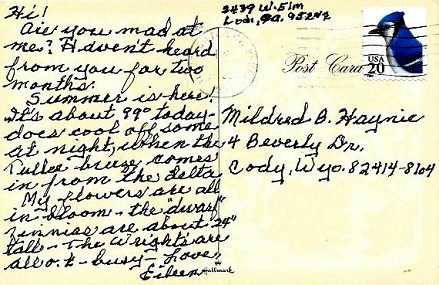 Hi!
Are you mad at
me? Haven't heard
from you for two
months.
Summer is here!
It's about 99° today-
does cool off some
at night, when the
breeze comes
in from the delta
My flowers are all
in bloom - the "dwarf"
zinnias are about 24"
tall - The Wrights are
all o k - busy - Love,
Eileen
Hallmark
2439 W. Elm
Lodi, Ca. 95242
Post Card
USA
20
Mildred B. Haynie
4 Beverly Dr.
Cody, Wyo. 82414-8104